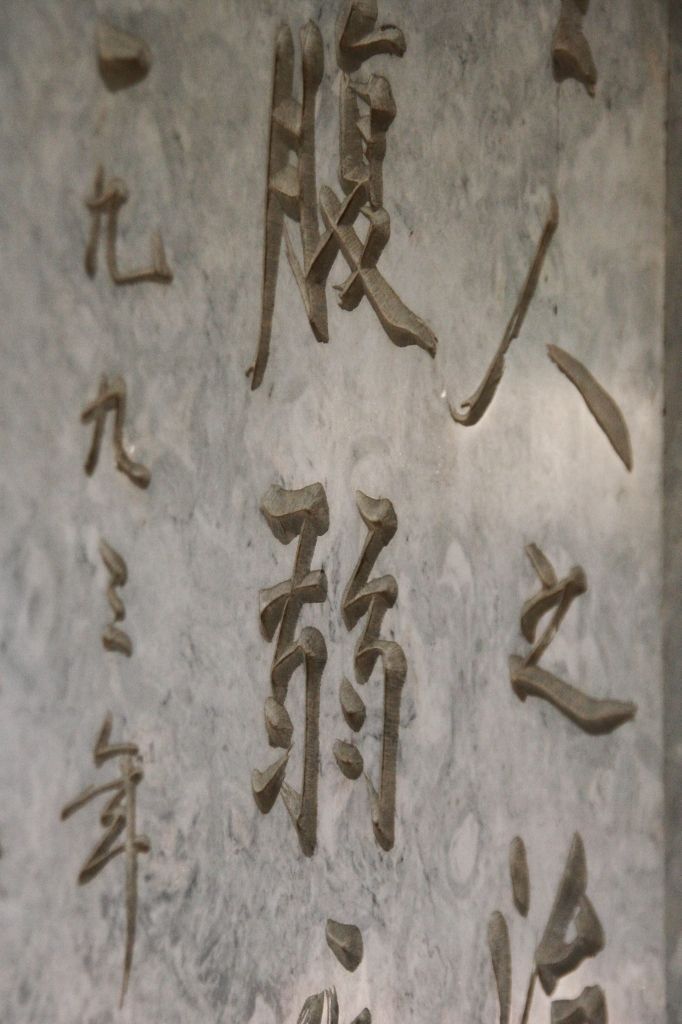 人之治
腹弱
一九九三年